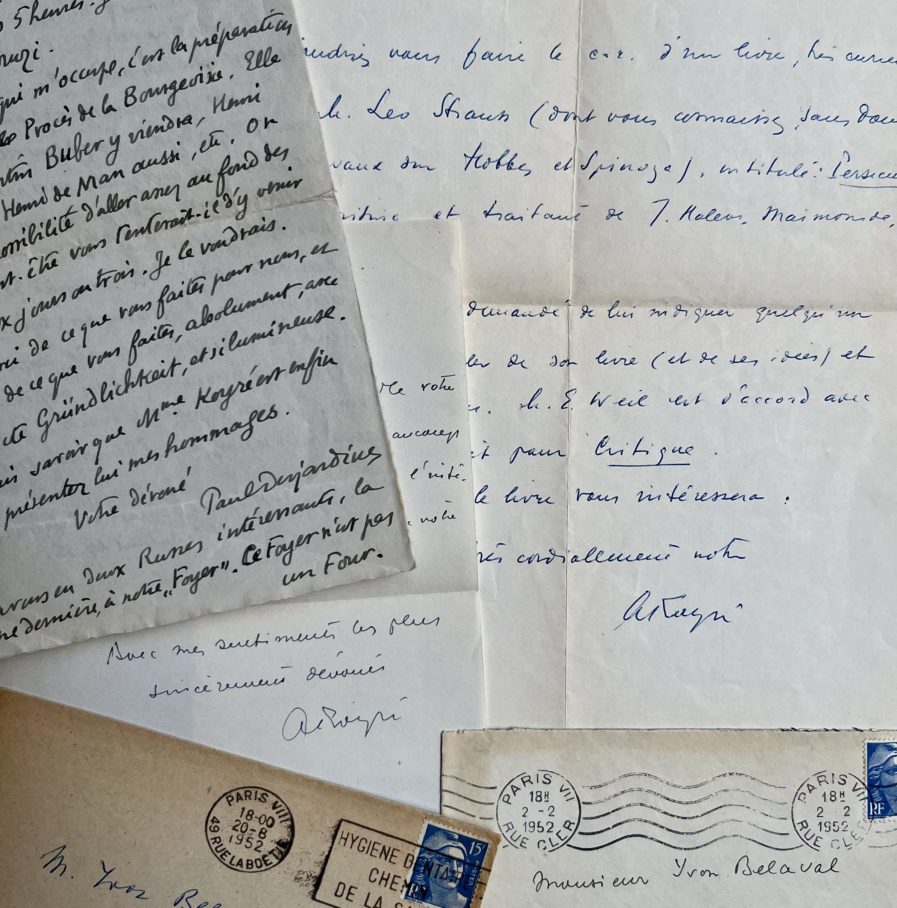 5 heures.
qui m'occupe, c'est la préparation
Procès de la Bourgeoisie. Elle
Buber y viendra, Henri
Henri de Man aussi, etc. On
possibilité d'aller assez au fond des
être vous tenterait-il d'y venir
jours ou trois. Je le voudrais.
de ce que vous faites pour nous, et
de ce que vous faites, absolument, avec
Gründlichkeit, et si lumineuse.
savoir que Mme Koyré est enfin
présenter lui mes hommages.
Votre dévoué
Paul Desjardins
avons eu deux Russes intéressants, la
dernière, à notre „Foyer". Ce Foyer n'est pas
un Four.
vous faire le c.r. d'un livre, très
Leo Strauss (dont vous connaissez, sans
sur Hobbes et Spinoza), intitulé:
et traitant de J. Halevi, Maimonide,
demandé de lui indiquer quelqu'un
de son livre (et de ses idées) et
E. Weil est d'accord avec
pour Critique.
le livre vous intéressera.
cordiallement votre
AKoyré
votre
votre
Avec mes sentiments les plus
sincèrement dévoués
AKoyré
PARIS VIII
18-00
20-8
1952
HYGIENE DENTAIRE
CHEMIN
DE LA
15F
M. Yvon
PARIS VII
18H
2-2
1952
RUE CLER
PARIS VII
18H
2 2
1952
RUE CLER
RF
Monsieur Yvon Belaval